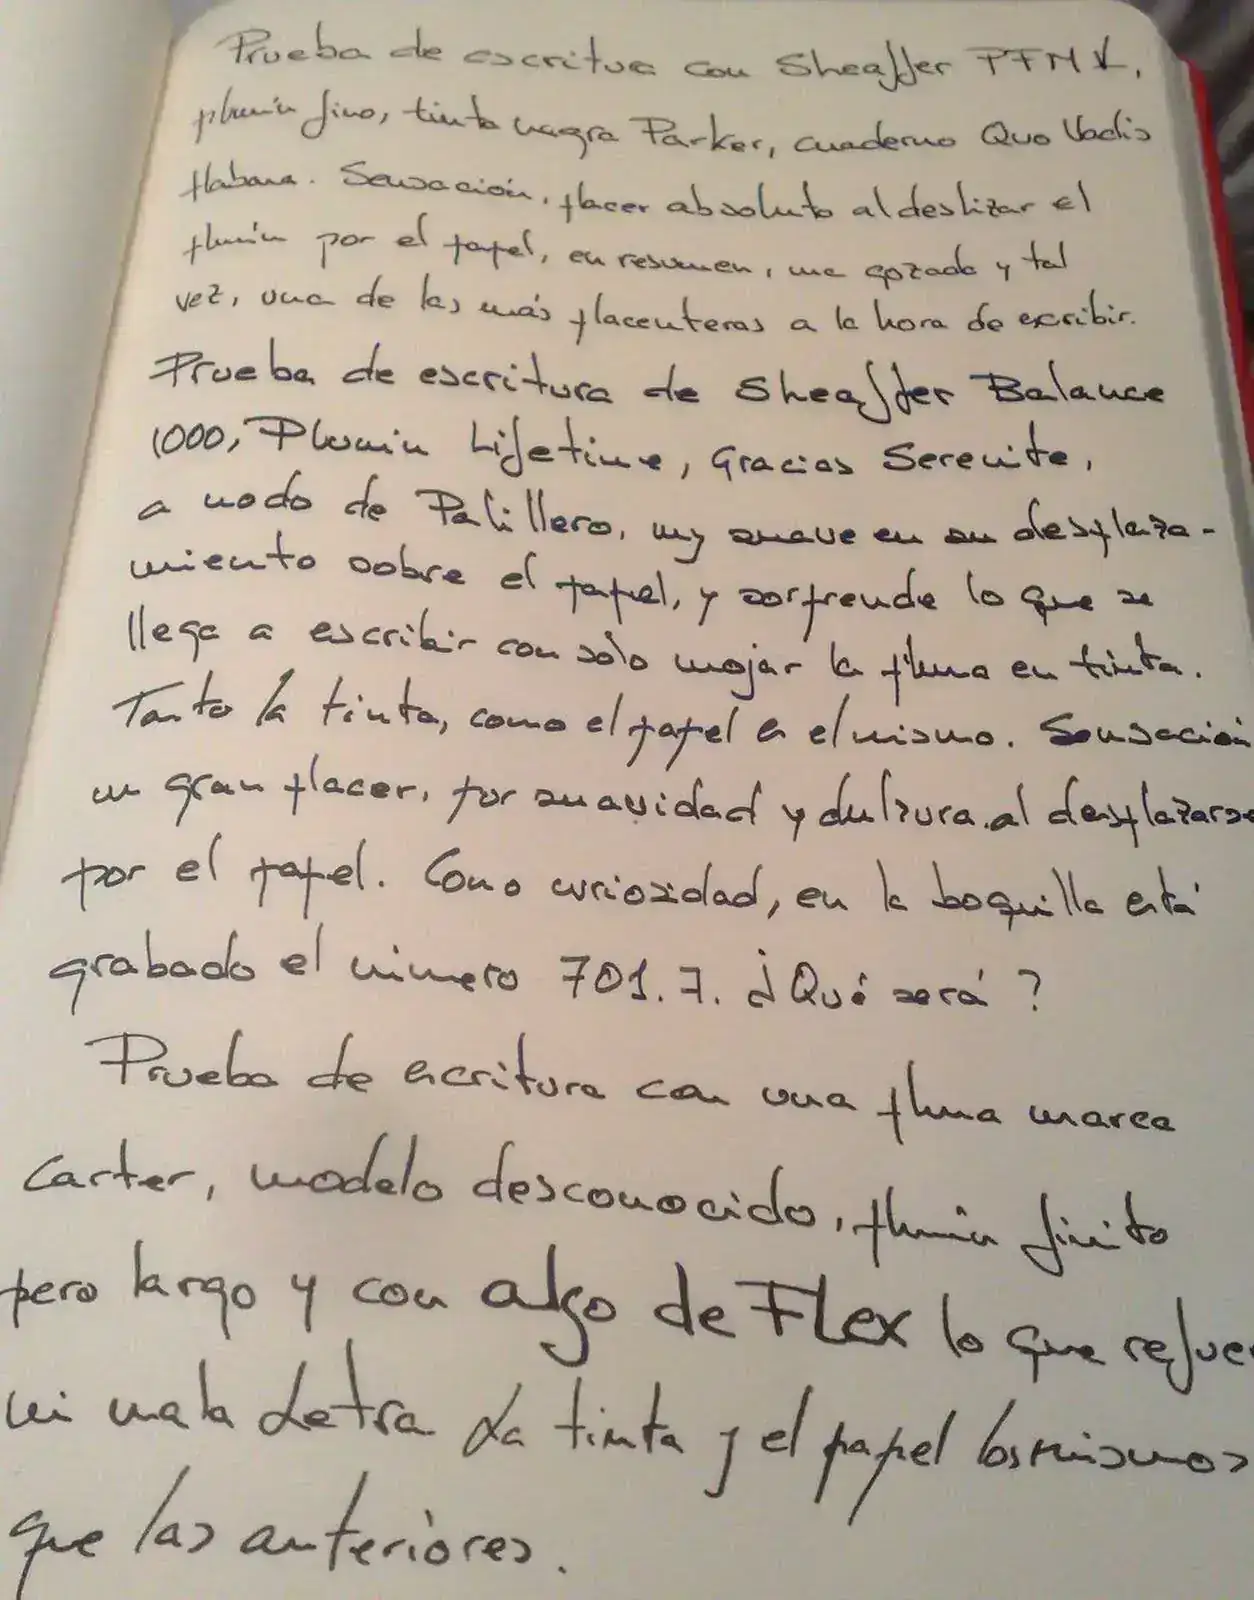 Prueba de escritura con Sheaffer PFM V,
plumín fino, tinta negra Parker, cuaderno Quo Vadis
Habana. Sensación, placer absoluto al deslizar el
plumín por el papel, en resumen, una gozada y tal
vez, una de las más placenteras a la hora de escribir.
Prueba de escritura de Sheaffer Balance
1000, Plumín Lifetime, Gracias Serenite,
a modo de Palillero, muy suave en su desplaza-
miento sobre el papel, y sorprende lo que se
llega a escribir con sólo mojar la pluma en tinta.
Tanto la tinta, como el papel es el mismo. Sensación
un gran placer, por suavidad y dulzura al desplazarse
por el papel. Como curiosidad, en la boquilla está
grabado el número 701.7. ¿Qué será?
Prueba de escritura con una pluma marca
Carter, modelo desconocido, plumín finito
pero largo y con algo de Flex lo que refuer
mi mala Letra La tinta y el papel los mismos
que las anteriores.